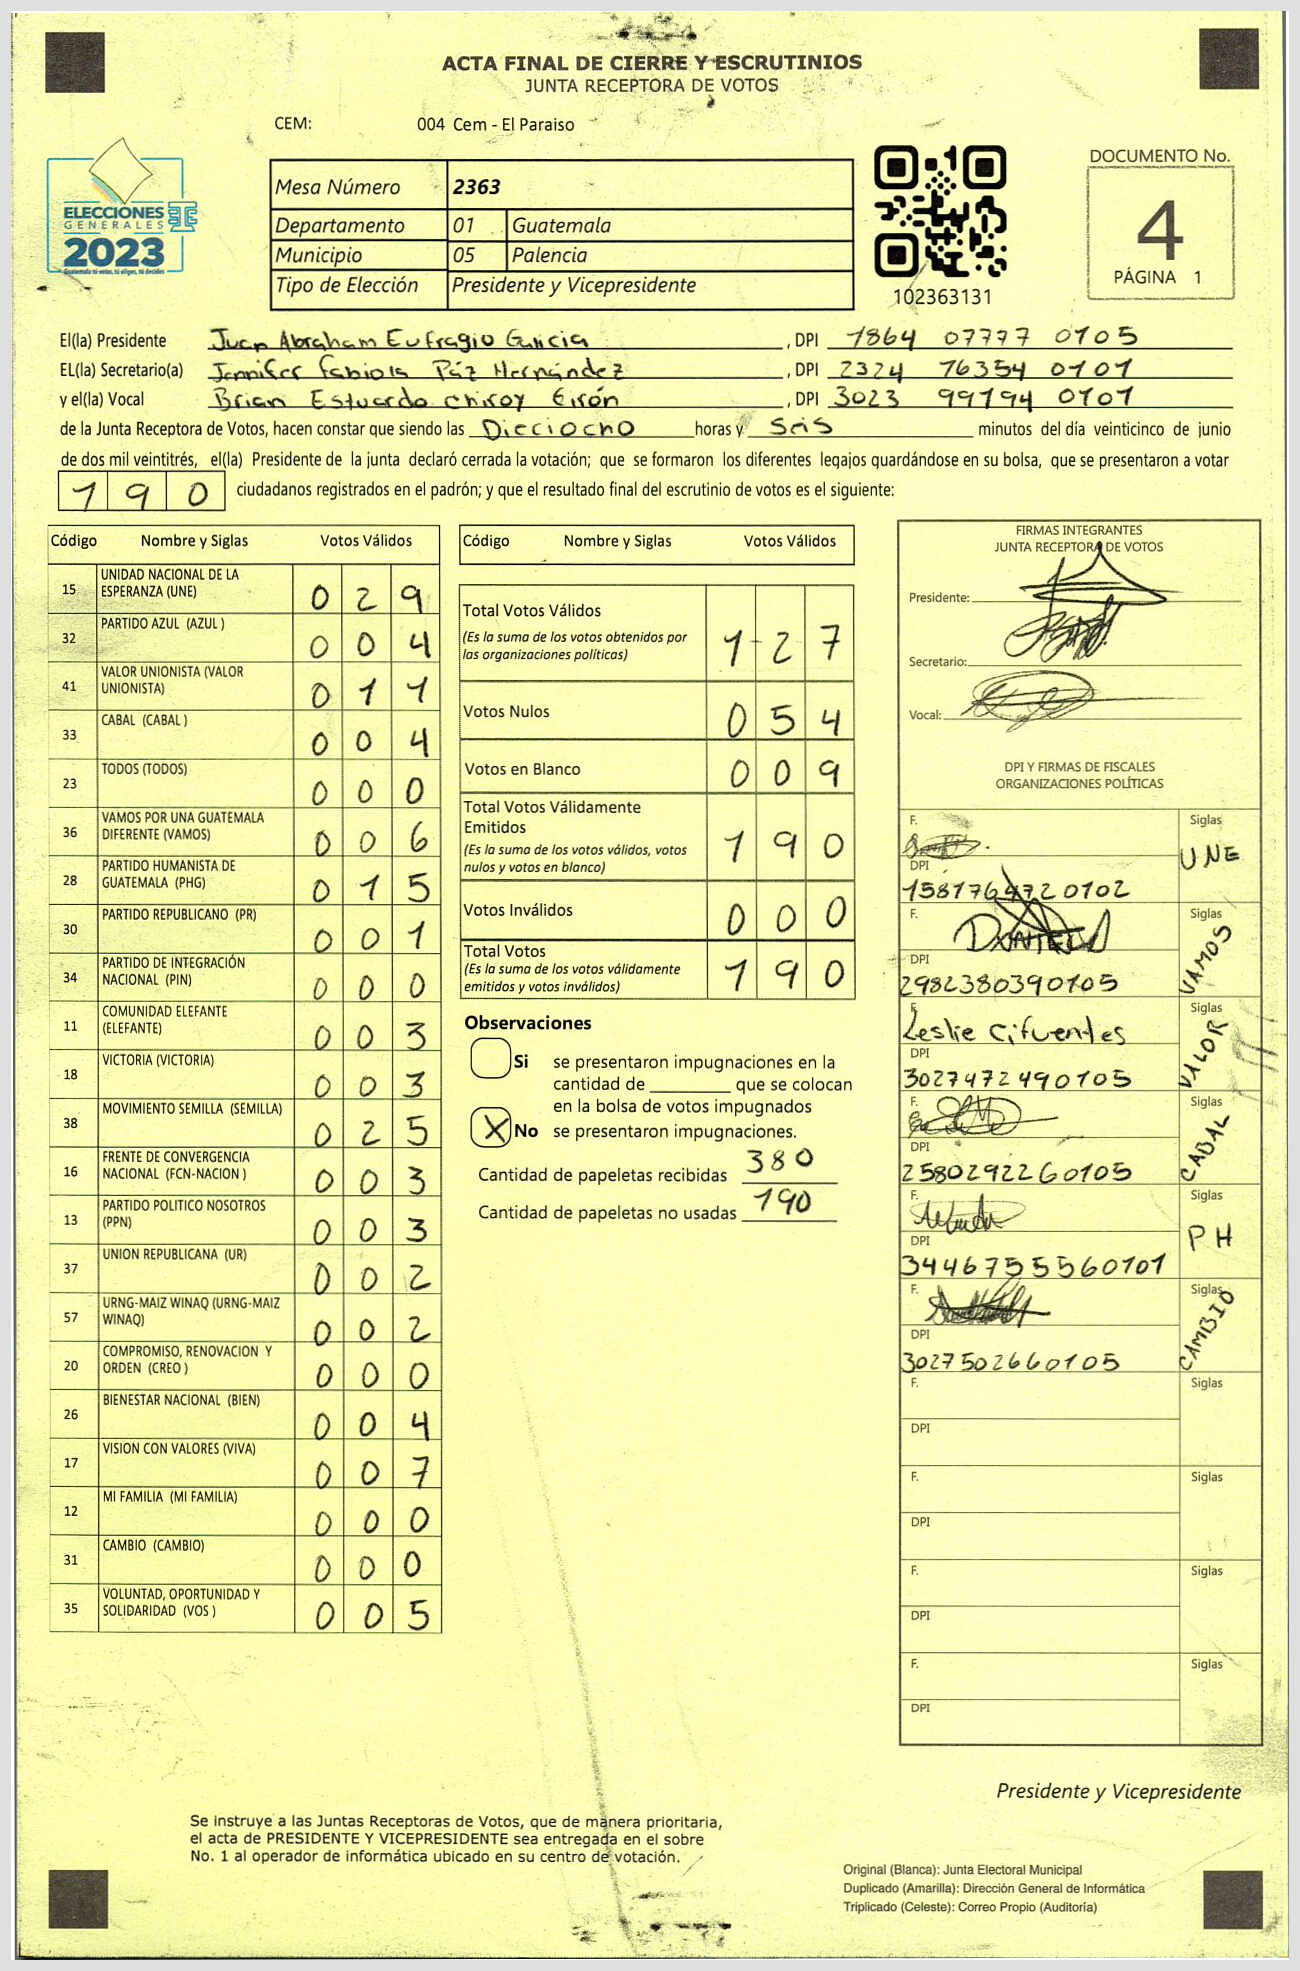 ACTA FINAL DE CIERRE Y ESCRUTINIOS
JUNTA RECEPTORA DE VOTOS
CEM: 004 Cem - El Paraiso
ELECCIONES
GENERALES
2023
Guatemala tú votas, tú eliges, tú decides
Mesa Número 2363
Departamento 01 Guatemala
Municipio 05 Palencia
Tipo de Elección Presidente y Vicepresidente
102363131
DOCUMENTO No.
4
PÁGINA 1
El(la) Presidente Juan Abraham Eufragio García, DPI 1864 07777 0105
EL(la) Secretario(a) Jennifer Fabiola Páz Hernández, DPI 2324 76354 0101
y el(la) Vocal Brian Estuardo Chiroy Girón, DPI 3023 99194 0101
de la Junta Receptora de Votos, hacen constar que siendo las Dieciocho horas y Seis minutos del día veinticinco de junio
de dos mil veintitrés, el(la) Presidente de la junta declaró cerrada la votación; que se formaron los diferentes legajos guardándose en su bolsa, que se presentaron a votar
190 ciudadanos registrados en el padrón; y que el resultado final del escrutinio de votos es el siguiente:
Código Nombre y Siglas Votos Válidos
15 UNIDAD NACIONAL DE LA
ESPERANZA (UNE) 0 2 9
32 PARTIDO AZUL (AZUL ) 0 0 4
41 VALOR UNIONISTA (VALOR
UNIONISTA) 0 1 1
33 CABAL (CABAL ) 0 0 4
23 TODOS (TODOS) 0 0 0
36 VAMOS POR UNA GUATEMALA
DIFERENTE (VAMOS) 0 0 6
28 PARTIDO HUMANISTA DE
GUATEMALA (PHG) 0 1 5
30 PARTIDO REPUBLICANO (PR) 0 0 1
34 PARTIDO DE INTEGRACIÓN
NACIONAL (PIN) 0 0 0
11 COMUNIDAD ELEFANTE
(ELEFANTE) 0 0 3
18 VICTORIA (VICTORIA) 0 0 3
38 MOVIMIENTO SEMILLA (SEMILLA) 0 2 5
16 FRENTE DE CONVERGENCIA
NACIONAL (FCN-NACION ) 0 0 3
13 PARTIDO POLITICO NOSOTROS
(PPN) 0 0 3
37 UNION REPUBLICANA (UR) 0 0 2
57 URNG-MAIZ WINAQ (URNG-MAIZ
WINAQ) 0 0 2
20 COMPROMISO, RENOVACION Y
ORDEN (CREO ) 0 0 0
26 BIENESTAR NACIONAL (BIEN) 0 0 4
17 VISION CON VALORES (VIVA) 0 0 7
12 MI FAMILIA (MI FAMILIA) 0 0 0
31 CAMBIO (CAMBIO) 0 0 0
35 VOLUNTAD, OPORTUNIDAD Y
SOLIDARIDAD (VOS ) 0 0 5
Código Nombre y Siglas Votos Válidos
Total Votos Válidos
(Es la suma de los votos obtenidos por
las organizaciones políticas) 1 2 7
Votos Nulos 0 5 4
Votos en Blanco 0 0 9
Total Votos Válidamente
Emitidos
(Es la suma de los votos válidos, votos
nulos y votos en blanco) 1 9 0
Votos Inválidos 0 0 0
Total Votos
(Es la suma de los votos válidamente
emitidos y votos inválidos) 1 9 0
Observaciones
Si se presentaron impugnaciones en la
cantidad de ________ que se colocan
en la bolsa de votos impugnados
X No se presentaron impugnaciones.
Cantidad de papeletas recibidas 380
Cantidad de papeletas no usadas 190
FIRMAS INTEGRANTES
JUNTA RECEPTORA DE VOTOS
Presidente:
Secretario:
Vocal:
DPI Y FIRMAS DE FISCALES
ORGANIZACIONES POLÍTICAS
F. Siglas
UNE
DPI
1581764720102
F. Siglas
VAMOS
DPI
2982380390105
F. Siglas
Leslie Cifuentes
VALOR
DPI
3027472490105
F. Siglas
CABAL
DPI
2580292260105
F. Siglas
PH
DPI
3446755560101
F. Siglas
CAMBIO
DPI
3027502660105
F. Siglas
DPI
F. Siglas
DPI
F. Siglas
DPI
F. Siglas
DPI
Presidente y Vicepresidente
Se instruye a las Juntas Receptoras de Votos, que de manera prioritaria,
el acta de PRESIDENTE Y VICEPRESIDENTE sea entregada en el sobre
No. 1 al operador de informática ubicado en su centro de votación.
Original (Blanca): Junta Electoral Municipal
Duplicado (Amarilla): Dirección General de Informática
Triplicado (Celeste): Correo Propio (Auditoría)